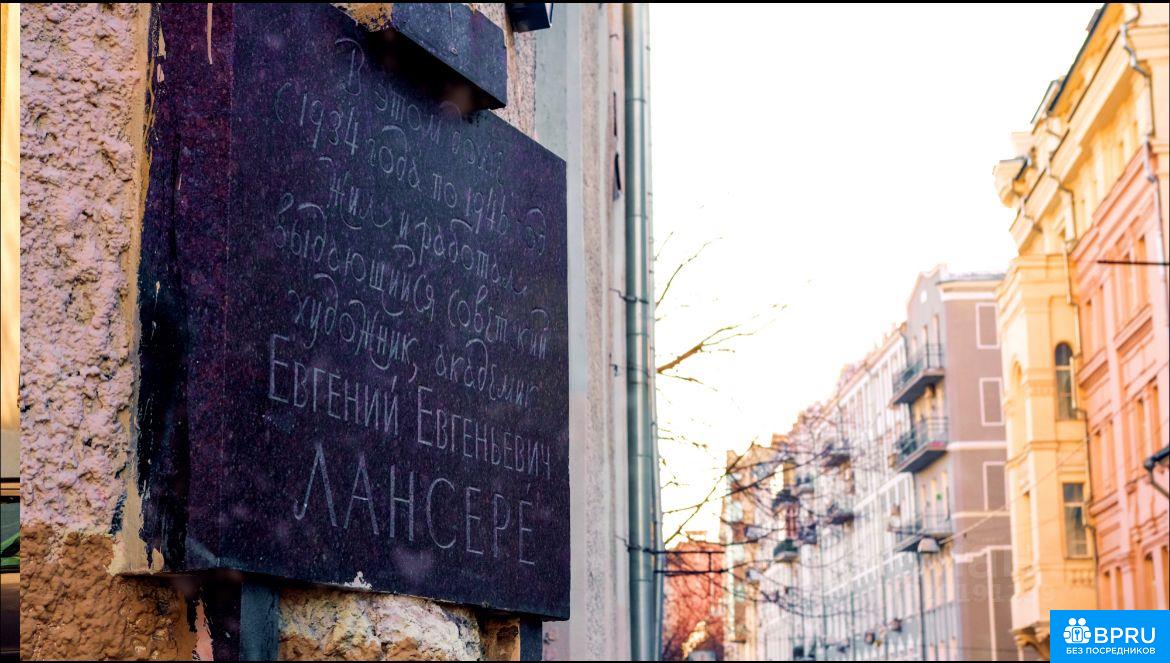 В этом доме
с 1934 года по 1946 год
жил и работал
выдающийся советский
художник, академик
ЕВГЕНИЙ ЕВГЕНЬЕВИЧ
ЛАНСЕРЕ
BPRU
БЕЗ ПОСРЕДНИКОВ